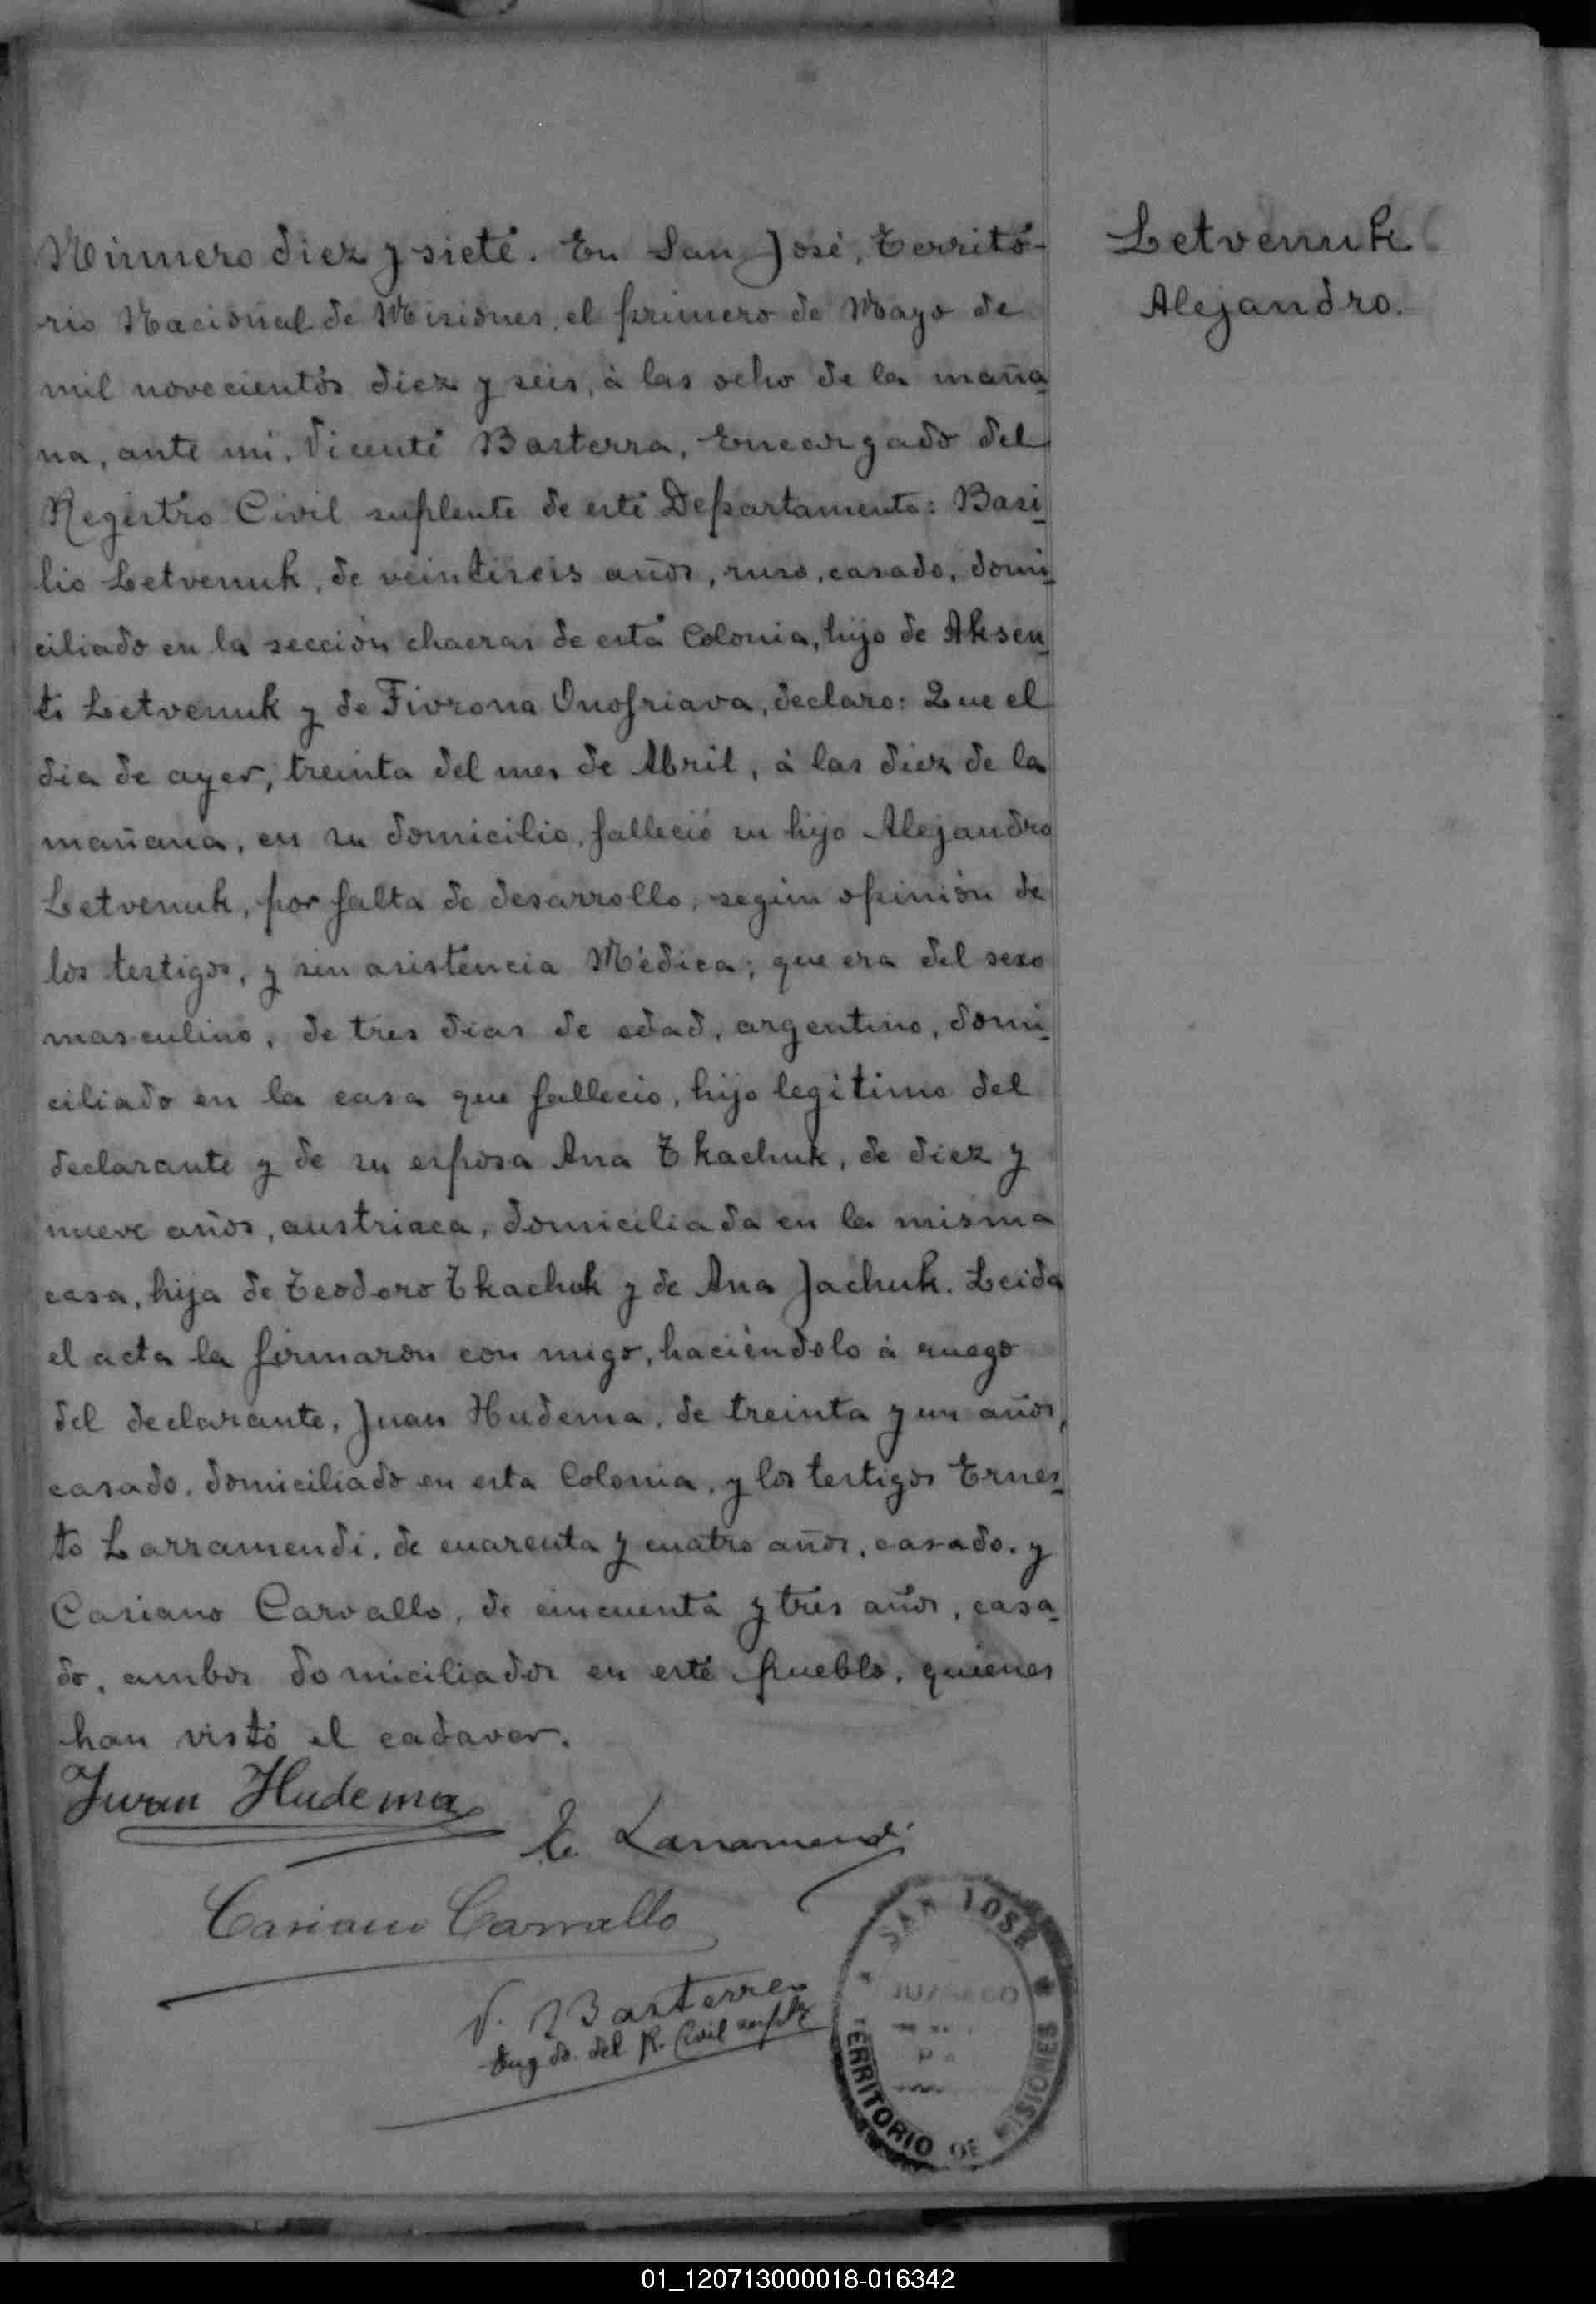 Número diez y siete. En San José, Territo-
rio Nacional de Misiones, el primero de Mayo de
mil novecientos diez y seis, à las ocho de la maña
na, ante mi, Vicente Basterra, Encargado del
Registro Civil suplente de este Departamento: Basi
lio Letvenuk, de veintiseis años, ruso, casado, domi
ciliado en la sección chacras de esta Colonia, hijo de Aksen
ti Letvenuk y de Fivrona Onofriava, declaro: Que el
dia de ayer, treinta del mes de Abril, à las diez de la
mañana, en su domicilio, falleció su hijo Alejandro
Letvenuk, por falta de desarrollo, según opinión de
los testigos, y sin asistencia Médica; que era del sexo
masculino, de tres dias de edad, argentino, domi
ciliado en la casa que fallecio, hijo legitimo del
declarante y de su esposa Ana Tkachuk, de diez y
nueve años, austriaca, domiciliada en la misma
casa, hija de Teodoro Tkachuk y de Ana Jachuk. Leida
el acta la firmaron con migo, haciéndolo à ruego
del declarante, Juan Hudema, de treinta y un años,
casado, domiciliado en esta Colonia, y los testigos Ernes
to Larramendi, de cuarenta y cuatro años, casado, y
Casiano Carvallo, de cincuenta y tres años, casa
do, ambos domiciliados en este pueblo, quienes
han visto el cadaver.
Juan Hudema
E. Larramendi
Casiano Carvallo
V. Basterra
Engdo. del R. Civil suplte
Letvenuk
Alejandro.
SAN JOSÉ
TERRITORIO DE MISIONES
01_120713000018-016342